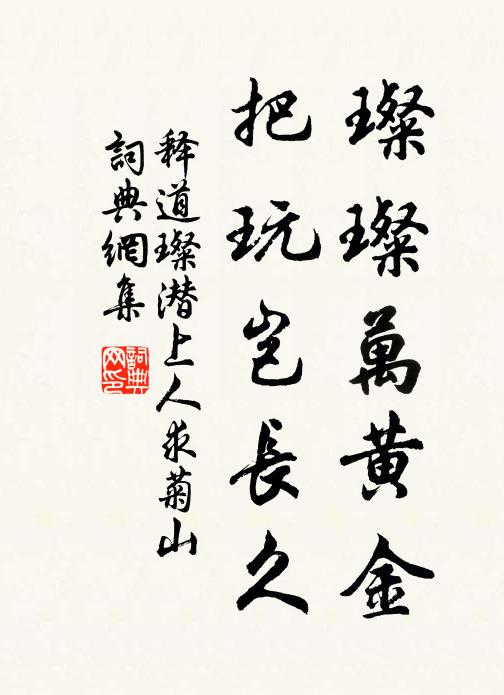 璨璨萬黄金
把玩岂長久
释道璨潜上人求菊山
詞典網集
詞典网印